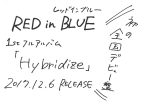 レッドインブルー
RED in BLUE
1stフルアルバム
「Hybridize」
2017.12.6 RELEASE
初の
全国デビュー盤